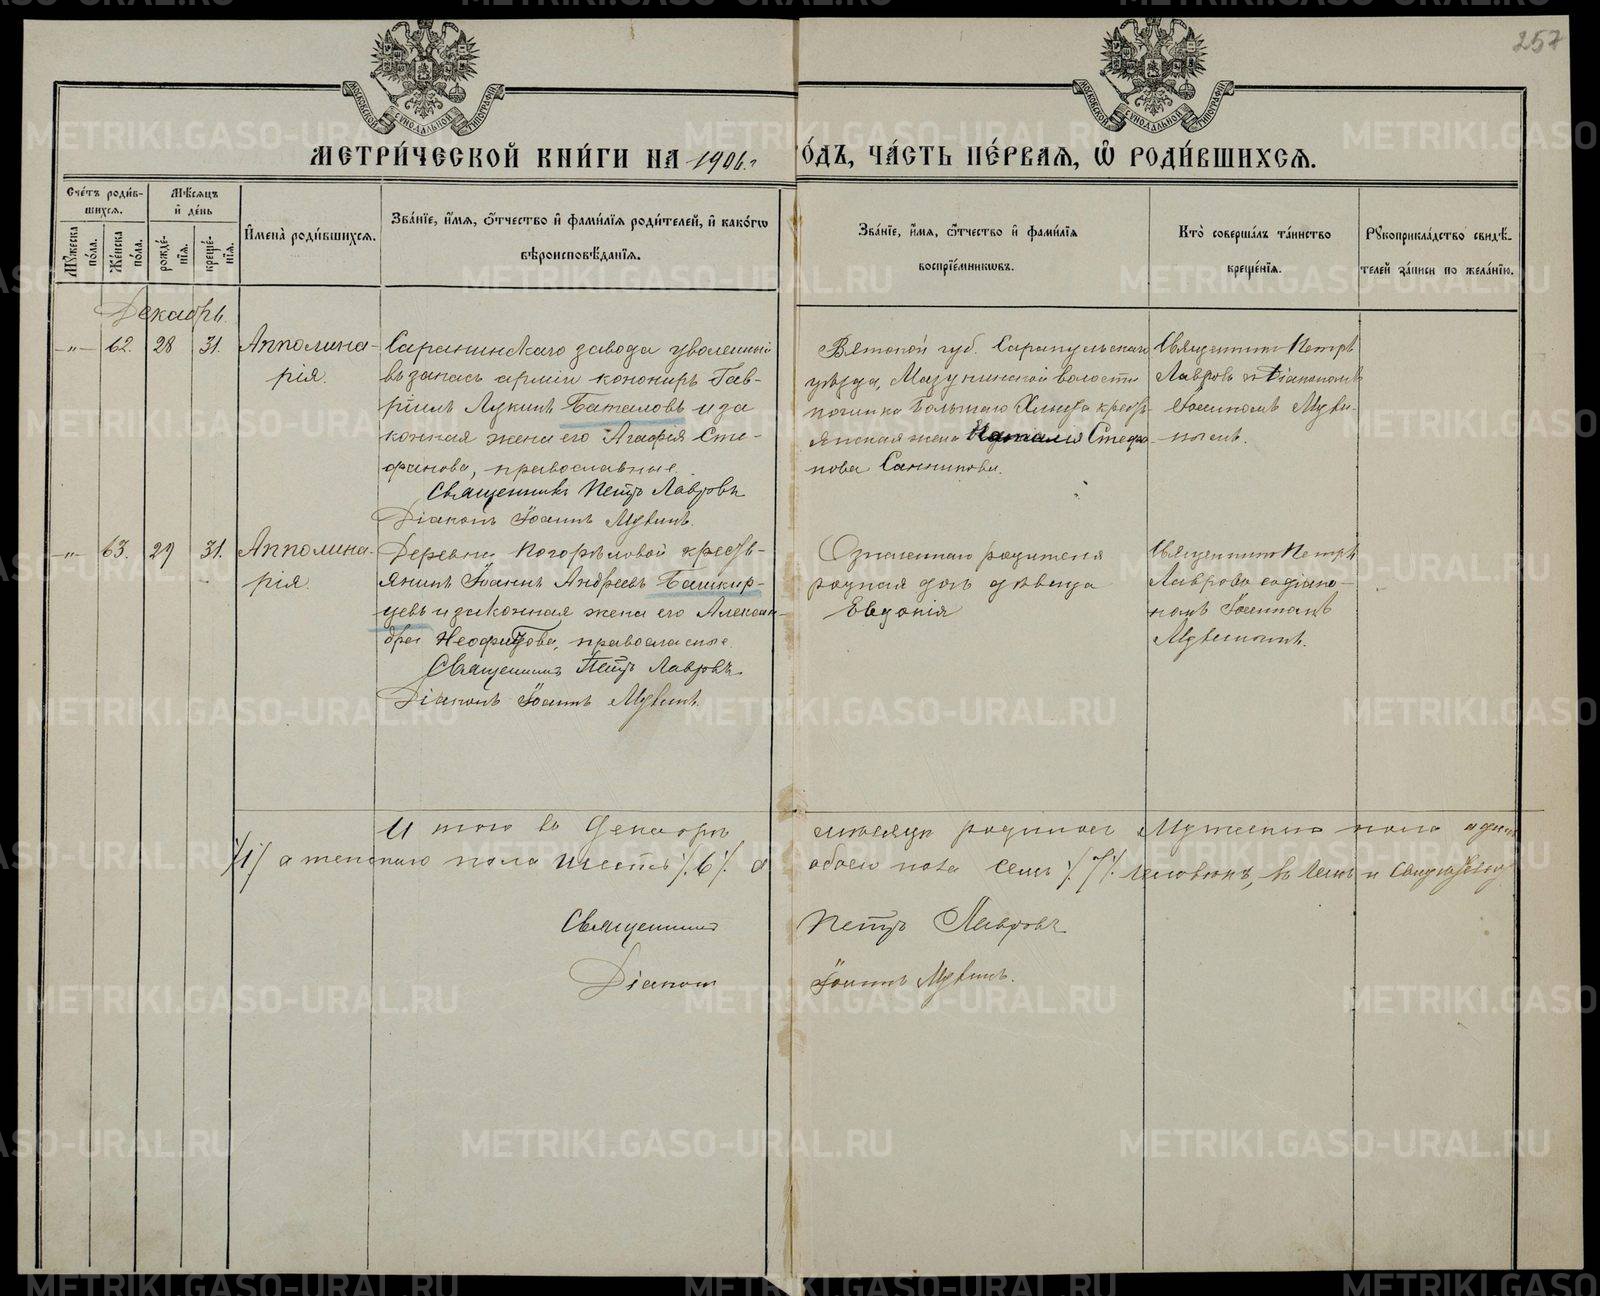 257
МОСКОВСКОЙ СѴНОДАЛЬНОЙ ТИПОГРАФІИ
МОСКОВСКОЙ СѴНОДАЛЬНОЙ ТИПОГРАФІИ
МЕТРИ́ЧЕСКОЙ КНИ́ГИ НА 1906.г
ГО́ДЪ, ЧА́СТЬ ПЕ́РВАЯ, Ѡ҆ РОДИ́ВШИХСЯ.
Сче́тъ роди́в-
шихся.
Мѣ́сяцъ
и҆ де́нь
Мꙋ́жеска по́ла.
Же́нска по́ла.
рожде́-нїя.
креще́-нїя.
И҆мена̀ роди́вшихся.
Зва́нїе, и҆́мя, ѻ҆́тчество и҆ фами́лїя роди́телей, и҆ како́гѡ
вѣроисповѣ́данїя.
Зва́нїе, и҆́мя, ѻ҆́тчество и҆ фами́лїя
воспрїе́мникѡвъ.
Кто̀ соверша́лъ та́инство
креще́нїя.
Рꙋкоприкла́дство свидѣ́-
телей за́писи по жела́нїю.
Декабрь.
-"- 62. 28 31. Апполина-
рія.
Саранинскаго завода уволенный
въ запасъ арміи канониръ Гав-
ріилъ Лукинъ Баталовъ и за
конная жена его Агафія Сте-
фанова, православные.
Священникъ Петръ Лавровъ
Діаконъ Іоаннъ Мѵ
Вятской губ. Сарапульскаго
уѣзда, Мазунинской волости
починка Большаго крестъ-
янская жена Наталія Стефа
нова Санникова.
Священникъ Петръ
Лавровъ съ діакономъ
Іоанномъ
-"- 63. 29 31. Апполина-
рія.
Деревни Погорѣловой кресть-
янинъ Іоаннъ Андреевъ Башкир-
цевъ и законная жена его Алексан-
дра Неофитова, православные.
Священникъ Петръ Лавровъ
Діаконъ Іоаннъ
Означеннаго родителя
родная дочь дѣвица
Евдокія
Священникъ Петръ
Лавровъ съ діако-
номъ Іоанномъ
Итого въ Декабрѣ мѣсяцѣ родилось мужескаго пола одинъ
/1/ а женскаго пола шесть /6/. а обоего пола семь /7/. человѣкъ, въ чемъ и свидѣтельствуемъ
Священникъ Петръ Лавровъ
Діаконъ Іоаннъ
METRIKI.GASO-URAL.RU